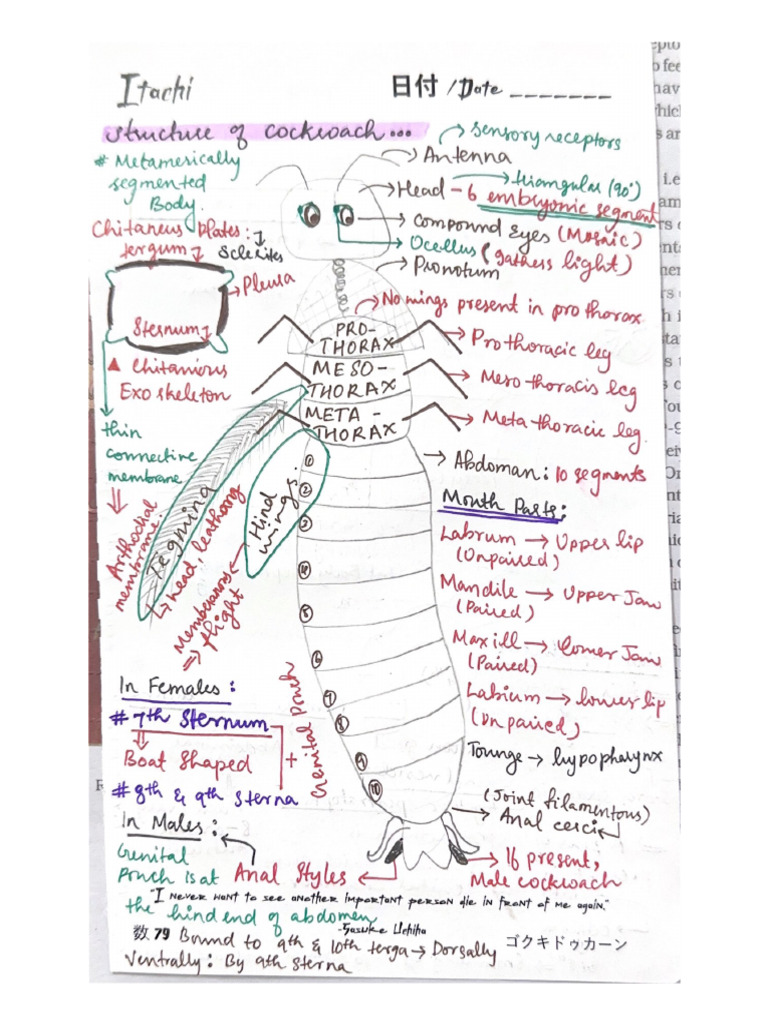 Itachi
日付 / Date _______
structure of cockroach...
→ sensory receptors
→ Antenna
# Metamerically
segmented
Body.
→ Head - 6 embryonic segment
→ triangular (90°)
→ compound eyes (Mosaic)
→ Ocellus (gathers light)
→ Pronotum
Chitaneus Plates:
tergum ↓ Sclerites
→ Pleura
Sternum
▲ Chitanious
Exo skeleton
thin
connective
membrane
Arithodial
membrane.
→ No wings present in pro thorax
PRO-
THORAX
MESO-
THORAX
META-
THORAX
→ Pro thoracic leg
→ Meso thoracis leg
→ Meta thoracic leg.
→ Abdoman: 10 segments
Tegmina
↳ Lead. leathory
Hind
wings.
Memberanous
⇒ flight
1
2
3
4
5
6
7
8
9
10
Mouth Parts:
Labrum → Upper lip
(Unpaired)
Mandile → Upper Jaw
(Paired)
Maxill → Lomer Jaw
(Paired)
Labium → lower lip
(Unpaired)
Tounge → hypopharynx
In Females:
# 7th Sternum
Boat Shaped
+ Genital Pouch
# 8th & 9th Sterna
In Males:
Genital
Pouch is at
Anal Styles
the hind end of abdomen
(Joint filamentous)
→ Anal cerci
→ 16 present,
Male cockroach
"I never want to see another important person die in front of me again."
-Sasuke Uchiha
数 79 Bound to 9th & 10th terga → Dorsally
ゴクキドゥカーン
Ventrally: By 9th sterna